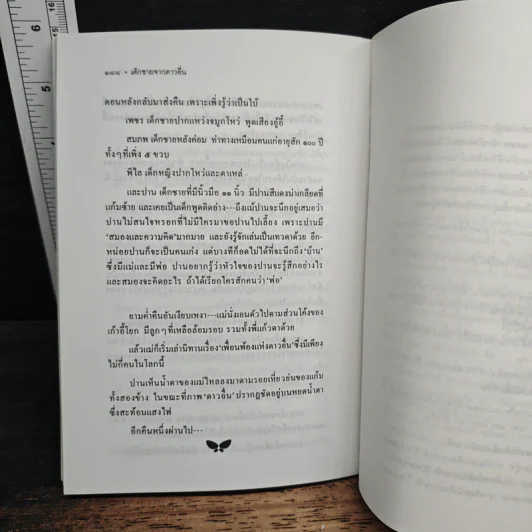 ๒๘๘ • เด็กชายจากดาวอื่น
ตอนหลังกลับมาส่งคืน เพราะเพิ่งรู้ว่าเป็นใบ้
เพชร เด็กชายปากแหว่งจมูกโหว่ พูดเสียงอู้อี้
สมภพ เด็กชายหลังค่อม ทำทางเหมือนคนแก่อายุสัก ๑๐๐ ปี
ทั้งๆที่เพิ่ง ๕ ขวบ
พิไล เด็กหญิงปากโหว่และตาเหล่
และปาน เด็กชายที่มีนิ้วมือ ๑๑ นิ้ว มีปานสีแดงน่าเกลียดที่
แก้มซ้าย และเคยเป็นเด็กพูดติดอ่าง---ถึงแม้ปานจะนึกอยู่เสมอว่า
ปานไม่สนใจหรอกที่ไม่มีใครมาขอปานไปเลี้ยง เพราะปานมี
‘สมองและความคิด’มากมาย และยังรู้จักเล่นเป็นเทวดาด้วย อีก-
หน่อยปานก็จะเป็นคนเก่ง แต่บางทีก็อดไม่ได้ที่จะนึกถึง‘บ้าน’
ซึ่งมีแม่และมีพ่อ ปานอยากรู้ว่าหัวใจของปานจะรู้สึกอย่างไร
และสมองจะคิดอะไร ถ้าได้เรียกใครสักคนว่า‘พ่อ’
ยามค่ำคืนอันเงียบเหงา---แม่นั่งเอนตัวไปตามส่วนโค้งของ
เก้าอี้โยก มีลูกๆที่เหลือล้อมรอบ รวมทั้งพี่แก้วตาด้วย
แล้วแม่ก็เริ่มเล่านิทานเรื่อง‘เพื่อนพ้องแห่งดาวอื่น’ซึ่งมีเพียง
ไม่กี่คนในโลกนี้
ปานเห็นน้ำตาของแม่ไหลลงมาตามรอยเหี่ยวย่นของแก้ม
ทั้งสองข้าง ในขณะที่ภาพ‘ดาวอื่น’ปรากฏชัดอยู่บนหยดน้ำตา
ซึ่งสะท้อนแสงไฟ
อีกคืนหนึ่งผ่านไป---
6
5
16
15